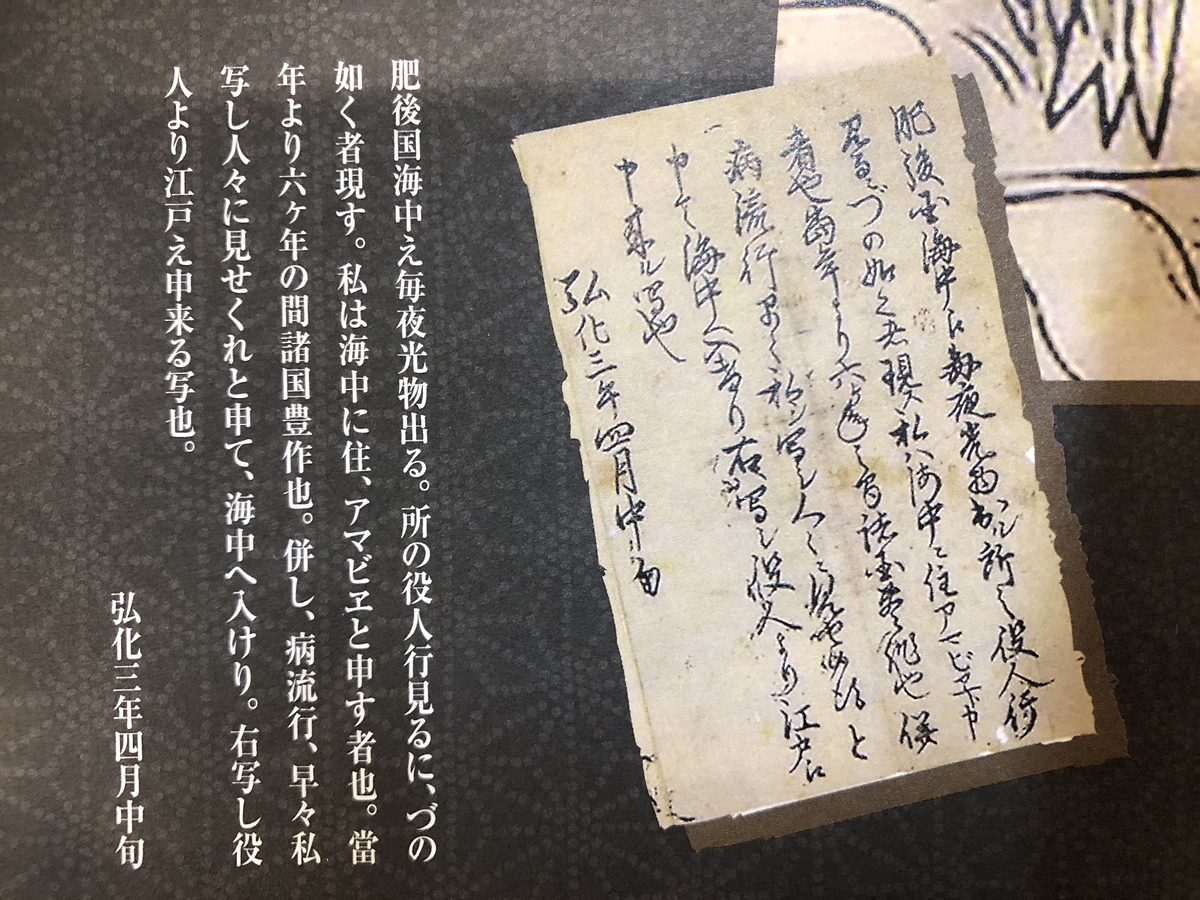 肥後国海中江毎夜光物出ル所之役人行
見るニづの如く者現ス私ハ海中ニ住アマビヱト申
者也當年より六ヶ年之間諸国豊作也併
病流行早々私シ写シ人々ニ見セ候得と
申て海中へ入けり右写シ役人より江戸江
申来ル写也
弘化三年四月中旬
肥後国海中え毎夜光物出る。所の役人行見るに、づの
如く者現す。私は海中に住、アマビヱと申す者也。當
年より六ヶ年の間諸国豊作也。併し、病流行、早々私
写し人々に見せくれと申て、海中へ入けり。右写し役
人より江戸え申来る写也。
弘化三年四月中旬